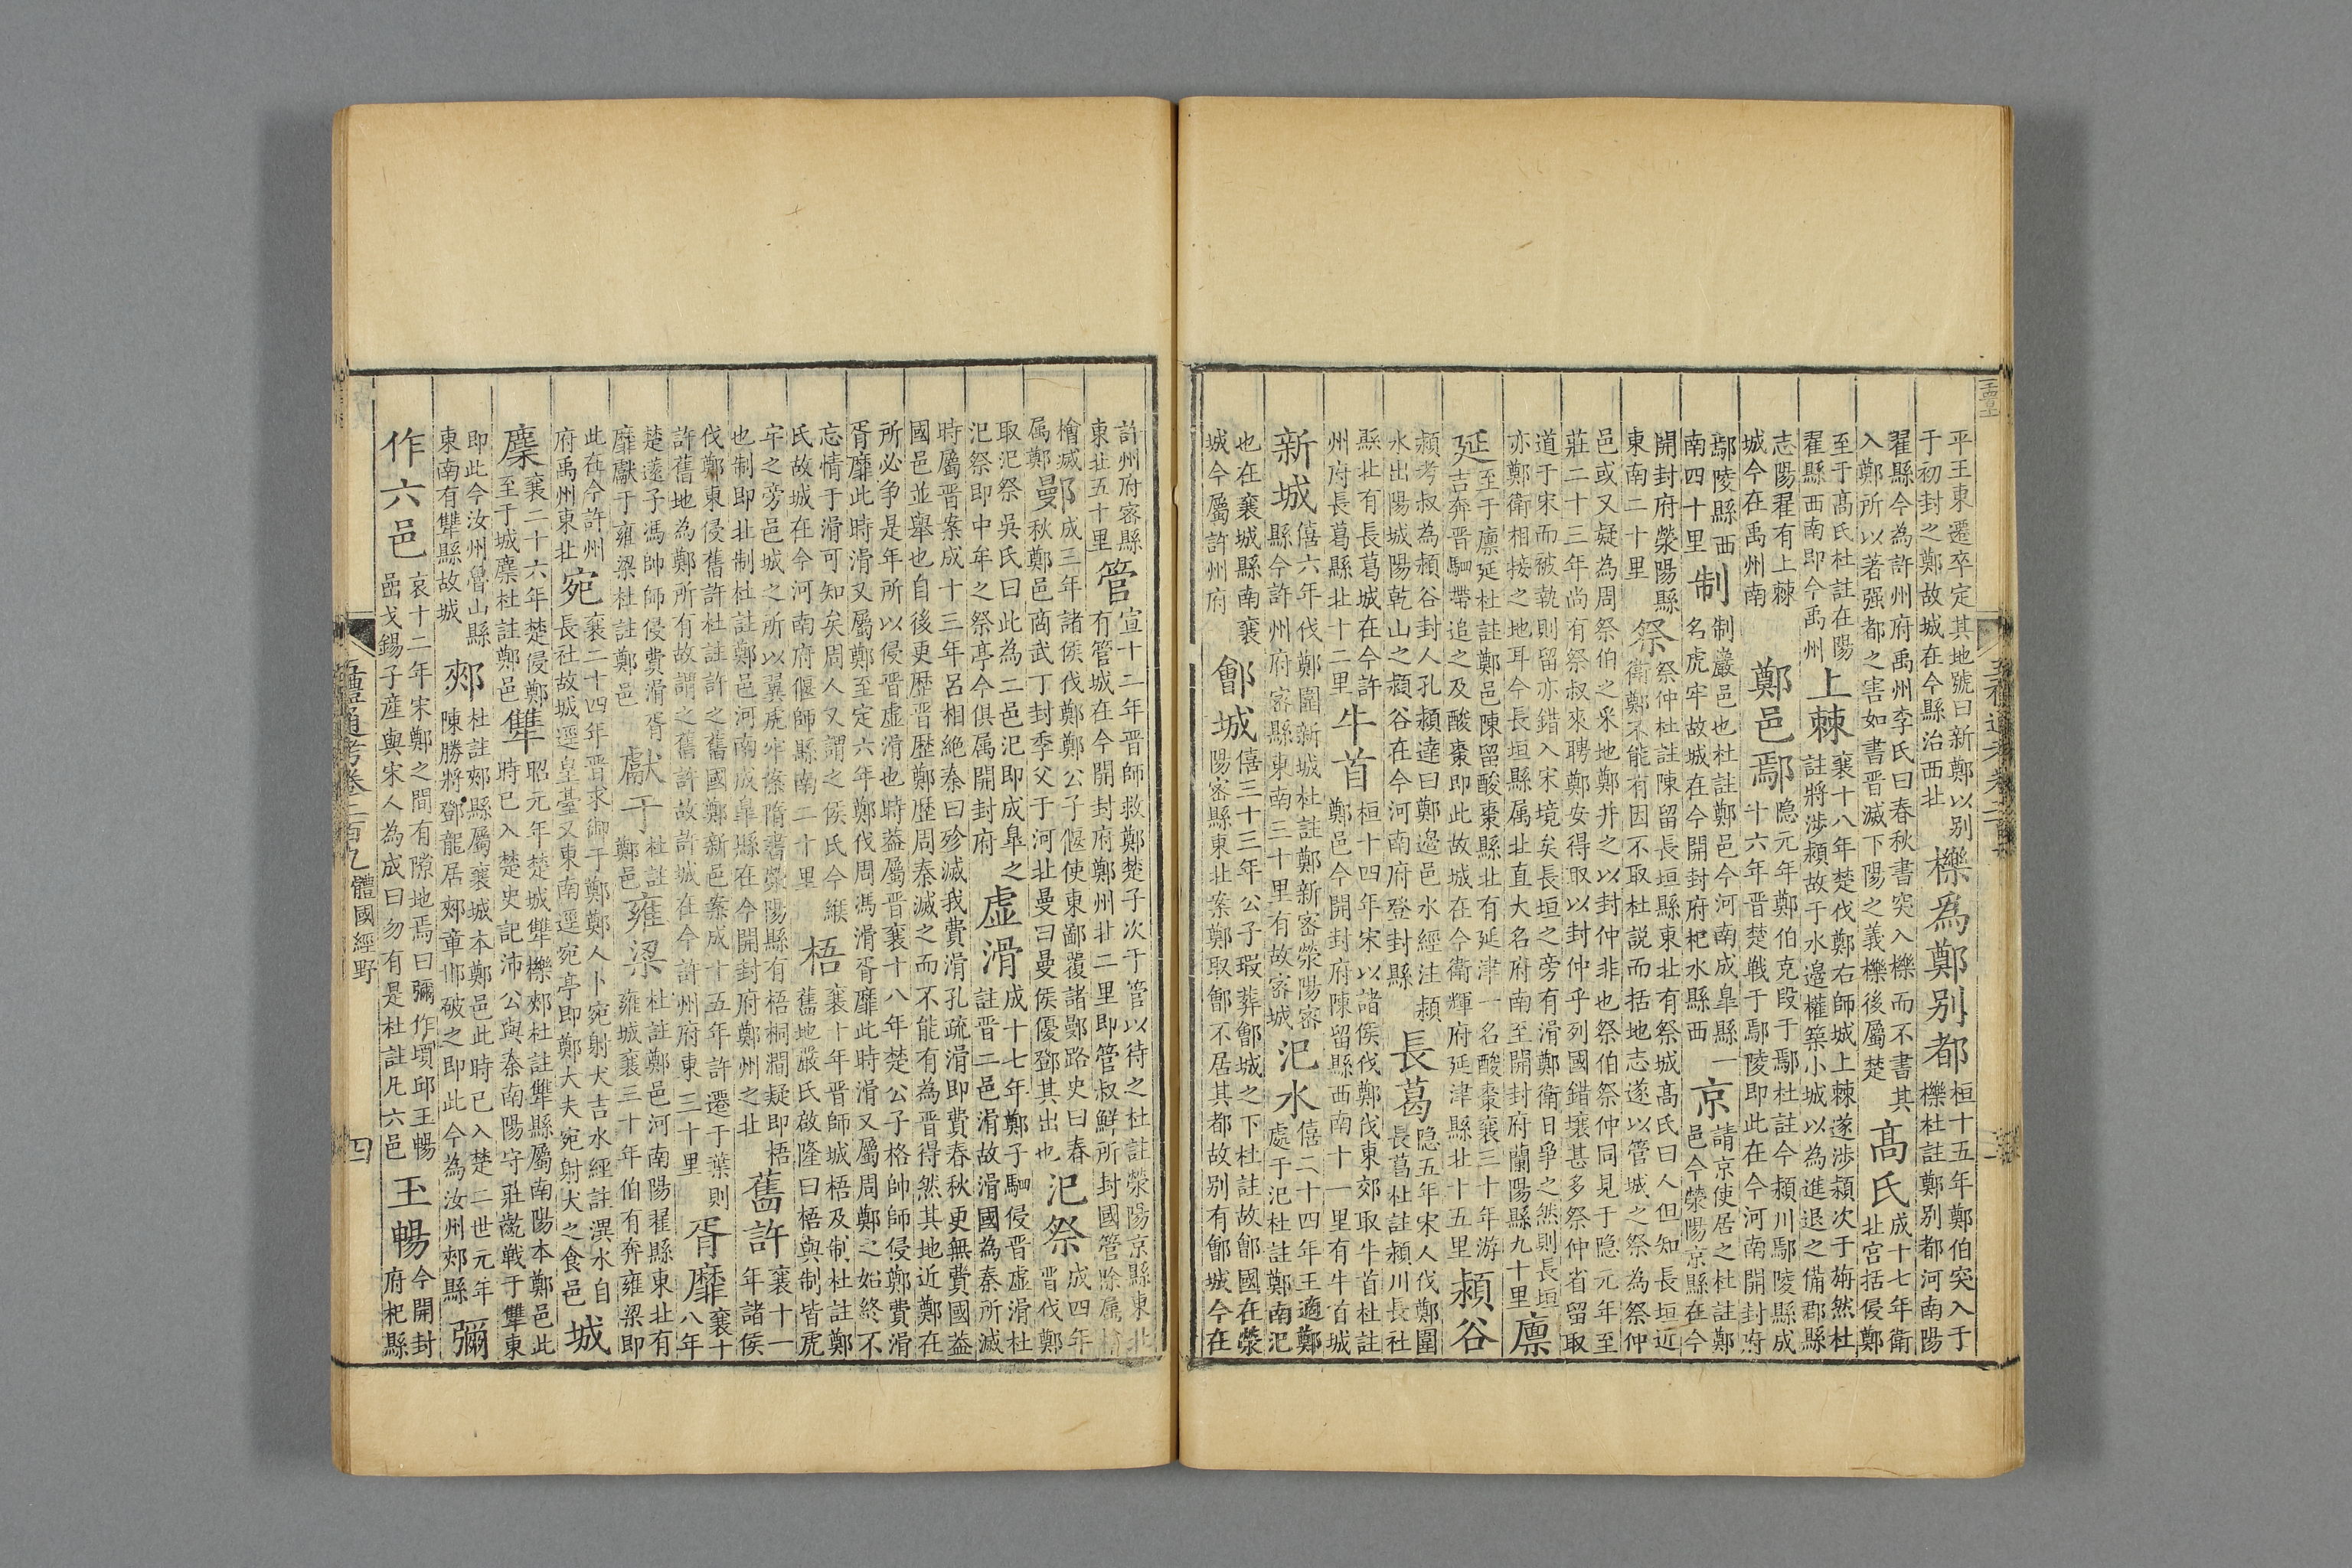 平王東遷卒定其地號曰新鄭以别
于初封之鄭故城在今縣治西北
櫟為鄭别都
桓十五年鄭伯突入于
櫟杜註鄭别都河南陽
翟縣今為許州府禹州李氏曰春秋書突入櫟而不書其
入鄭所以著强都之害如書晋滅下陽之義櫟後屬楚
高氏
成十七年衛
北宫括侵鄭
至于高氏杜註在陽
翟縣西南即今禹州
上棘
襄十八年楚伐鄭右師城上棘遂涉潁次于旃然杜
註將涉潁故于水邊權築小城以為進退之備郡縣
志陽翟有上棘
城今在禹州南
鄭邑鄢
隐元年鄭伯克段于鄢杜註今潁川鄢陵縣成
十六年晋楚戰于鄢陵即此在今河南開封府
鄢陵縣西
南四十里
制
制巖邑也杜註鄭邑今河南成皐縣一
名虎牢故城在今開封府杞水縣西
京
請京使居之杜註鄭
邑今滎陽京縣在今
開封府滎陽縣
東南二十里
祭
祭仲杜註陳留長垣縣東北有祭城高氏曰人但知長垣近
衛鄭不能有因不取杜説而括地志遂以管城之祭為祭仲
邑或又疑為周祭伯之采地鄭并之以封仲非也祭伯祭仲同見于隐元年至
莊二十三年尚有祭叔來聘鄭安得取以封仲乎列國錯壤甚多祭仲省留取
道于宋而被執則留亦錯入宋境矣長垣之旁有滑鄭衛日爭之然則長垣
亦鄭衛相接之地耳今長垣縣属北直大名府南至開封府蘭陽縣九十里
廪
延
至于廪延杜註鄭邑陳留酸棗縣北有延津一名酸棗襄三十年游
吉奔晋駟帶追之及酸棗即此故城在今衛輝府延津縣北十五里
潁谷
潁考叔為潁谷封人孔潁達曰鄭邊邑水經注潁
水出陽城陽乾山之潁谷在今河南府登封縣
長葛
隐五年宋人伐鄭圍
長葛杜註潁川長社
縣北有長葛城在今許
州府長葛縣北十二里
牛首
桓十四年宋以諸侯伐鄭伐東郊取牛首杜註
鄭邑今開封府陳留縣西南十一里有牛首城
新城
僖六年伐鄭圍新城杜註鄭新密滎陽密
縣今許州府密縣東南三十里有故密城
汜水
僖二十四年王適鄭
處于汜杜註鄭南汜
也在襄城縣南襄
城今屬許州府
鄶城
僖三十三年公子瑕葬鄶城之下杜註故鄶國在滎
陽密縣東北案鄭取鄶不居其都故别有鄶城今在
許州府密縣
東北五十里
管
宣十二年晋師救鄭楚子次于管以待之杜註滎陽京縣東北
有管城在今開封府鄭州北二里即管叔鮮所封國管除属檜
檜滅
属鄭
鄤
成三年諸侯伐鄭鄭公子偃使東鄙覆諸鄤路史曰春
秋鄭邑商武丁封季父于河北曼曰曼侯優鄧其出也
汜祭
成四年
晋伐鄭
取汜祭吳氏曰此為二邑汜即成皐之
汜祭即中牟之祭亭今俱属開封府
虛滑
成十七年鄭子駟侵晋虛滑杜
註晋二邑滑故滑國為秦所滅
時屬晋案成十三年呂相絶秦曰殄滅我費滑孔疏滑即費春秋更無費國益
國邑並舉也自後更歷晋歷鄭歷周秦滅之而不能有為晋得然其地近鄭在
所必争是年所以侵晋虛滑也時益屬晋襄十八年楚公子格帥師侵鄭費滑
胥靡此時滑又屬鄭至定六年鄭伐周馮滑胥靡此時滑又屬周鄭之始終不
忘情于滑可知矣周人又謂之侯氏今緱
氏故城在今河南府偃師縣南二十里
梧
襄十年晋師城梧及制杜註鄭
舊地嚴氏啟隆曰梧與制皆虎
牢之旁邑城之所以翼虎牢案隋書滎陽縣有梧桐澗疑即梧
也制即北制杜註鄭邑河南成皐縣在今開封府鄭州之北
舊許
襄十一
年諸侯
伐鄭東侵舊許杜註許之舊國鄭新邑案成十五年許遷于葉則
許舊地為鄭所有故謂之舊許故許城在今許州府東三十里
胥靡
襄十
八年
楚蒍子馮帥師侵費滑胥
靡獻于雍梁杜註鄭邑
獻于
杜註
鄭邑
雍梁
杜註鄭邑河南陽翟縣東北有
雍城襄三十年伯有奔雍梁即
此在今許州
府禹州東北
宛
襄二十四年晋求御于鄭鄭人卜宛射犬吉水經註潩水自
長社故城逕皇臺又東南逕宛亭即鄭大夫宛射犬之食邑
城
麇
襄二十六年楚侵鄭
至于城麇杜註鄭邑
犨
昭元年楚城犨櫟郟杜註犨縣屬南陽本鄭邑此
時已入楚史記沛公與秦南陽守莊齮戰于犨東
即此今汝州魯山縣
東南有犨縣故城
郟
杜註郟縣屬襄城本鄭邑此時已入楚二世元年
陳勝將鄧龍居郟章邯破之即此今為汝州郟縣
彌
作六邑
哀十二年宋鄭之間有隙地焉曰彌作頃邱玉暢
嵒戈錫子產與宋人為成曰勿有是杜註凡六邑
玉暢
今開封
府杞縣
五禮通考卷二百九
體國經野
四